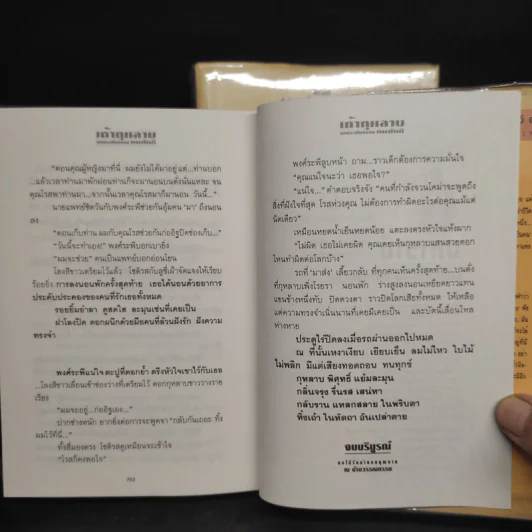 เถ้ากุหลาบ
"ตอนคุณผู้หญิงมาที่นี่ ผมยังไม่ได้มาอยู่ แต่...ท่านบอก
...แล้วเวลาท่านมาพักผ่อนท่านก็จะมานอนบนตั่งนั่นแหละ จน
คุณโรสพาท่านมา...จากนั้นเวลาคุณโรสมาก็มานอน วันนี้..."
นายแพทย์ชิดวันกับพงศ์ระพีช่วยกันอุ้มคน 'มา' ถึงนอน
ลง
"ตอนเก็บท่าน ผมกับคุณโรสช่วยกันก่ออิฐปิดช่องเก็บ..."
"วันนี้จะทำเอง!" พงศ์ระพีบอกเบายิ่ง
"ผมจะช่วย" คนเป็นแพทย์บอกอ่อนโยน
โลงสีขาวเตรียมไว้แล้ว โชติรสกับลูซี่เผ้าจัดแจงให้เรียบ
ร้อยยิ่ง การลงนอนพักครั้งสุดท้าย เธอได้นอนด้วยอาการ
ประคับประคองของคนที่รักเธอทั้งหมด
รอยยิ้มอำลา ดูสดใส ละมุนเช่นที่เคยเป็น
ฝาโลงปิด ตอกผนึกด้วยมือคนที่ล้วนฝังรัก ฝังความ
ทรงจำ
พงศ์ระพีแน่ใจ ตะปูที่ตอกย้ำ ตรึงหัวใจเขาไว้กับเธอ
...โลงสีขาวเลื่อนเข้าช่องว่างที่เตรียมไว้ ดอกกุหลาบขาววางราย
เรียง
"ผมจะอยู่...ก่ออิฐเอง..."
ปากช่างหนัก ยากยิ่งต่อการจะพูดจา "กลับกันเถอะ ทิ้ง
ผมไว้ที่นี่..."
ทั้งสี่มองตรง โชติรสดูเหมือนจะเข้าใจ
"โรสก็คงพอใจ"
เถ้ากุหลาบ
พงศ์ระพีลูบหน้า ถาม...ราวเด็กต้องการความมั่นใจ
"คุณแน่ใจนะว่า เธอพอใจ?"
"แน่ใจ..." คำตอบจริงจัง "คนที่กำลังจวนโคม่าจะพูดถึง
สิ่งที่ฝังใจที่สุด โรสห่วงคุณ ไม่ต้องการทำผิดอะไรต่อคุณแม้แต่
นิดเดียว"
เหมือนหยดน้ำเย็นหยดน้อย แตะลงตรงหัวใจแห้งผาก
"ไม่ผิด เธอไม่เคยผิด คุณเคยเห็นกุหลาบแสนสวยดอก
ไหนทำผิดต่อโลกบ้าง"
รถที่ 'มาส่ง' เลี้ยวกลับ ที่ทุกคนเห็นครั้งสุดท้าย...บนตั่ง
ที่กุหลาบเพิ่งโรยรา นอนพัก ร่างสูงลงนอนเหยียดยาวแทน
แขนข้างหนึ่งทับ ปิดดวงตา ราวปิดโลกเสียทั้งหมด ให้เหลือ
แต่ความทรงจำเนิ่นนานที่เคยมีเคยเป็น และบัดนี้เลื่อนไหล
ห่างหาย
ประตูไร่ปิดลงเมื่อรถผ่านออกไปหมด
ณ ที่นั้นเหงาเงียบ เยียบเย็น ลมไม่ไหว ใบไม้
ไม่พลิก มีแต่เสียงทอดถอน ทนทุกข์
กุหลาบ พิศุทธิ์ แย้มละมุน
กลิ่นจรุง รื่นรส เสน่หา
กลับราน แหลกสลาย ในพริบตา
ทิ้งเถ้า ในหัตถา อันเปล่าดาย
จบบริบูรณ์